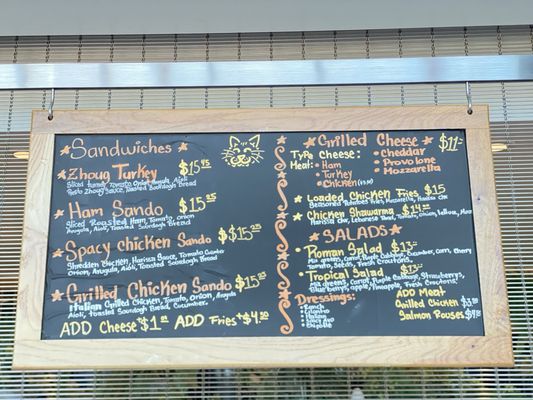 Sandwiches
Zhoug Turkey $15.45
Sliced turkey, Tomato, Onion, Arugula, Aioli,
Pesto Zhoug Sauce, Toasted Sourdough Bread
Ham Sando $15.45
Sliced Roasted Ham, Tomato, Onion
Arugula, Aioli, Toasted Sourdough Bread
Spacy chicken Sando $15.45
Shredden Chicken, Harissa Sauce, Tomato
Onion, Arugula, Aioli, Toasted Sourdough Bread
Grilled Chicken Sando $15.45
Italian Grilled Chicken, Tomato, Onion, Arugula
Aioli, Toasted Sourdough Bread, Cucumber.
ADD Cheese $1 ADD Fries $4.50
Grilled Cheese $11
Type Cheese:
Meat:
Ham
Turkey
Chicken
Cheddar
Provolone
Mozzarella
Loaded Chicken Fries $15
Seasoned Potatoes Fries
Chicken Shawarma $14
SALADS
Roman Salad $13
Mix greens, Carrot, Purple Cabbage, Cucumber, Corn, Cherry
Tomato, Seeds, Fresh Croutons
Tropical Salad $13
Mix greens, Carrot, Purple Strawberry,
Blueberry, apple, Pineapple, Fresh Croutons.
Dressings:
Ranch
Cilantro
Italian
Chipotle
ADD Meat
Grilled Chicken
Salmon Pouses